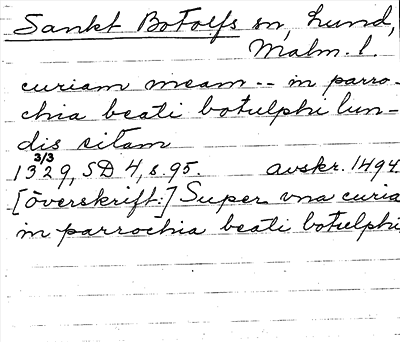 Sankt Botolfs sn, Lund,
Malm. l.
curiam meam -- in parro-
chia beati botulphi lun-
dis sitam
3/3
1329, SD 4, s. 95. avskr. 1494
[överskrift:] Super vna curia
in parrochia beati botulphi